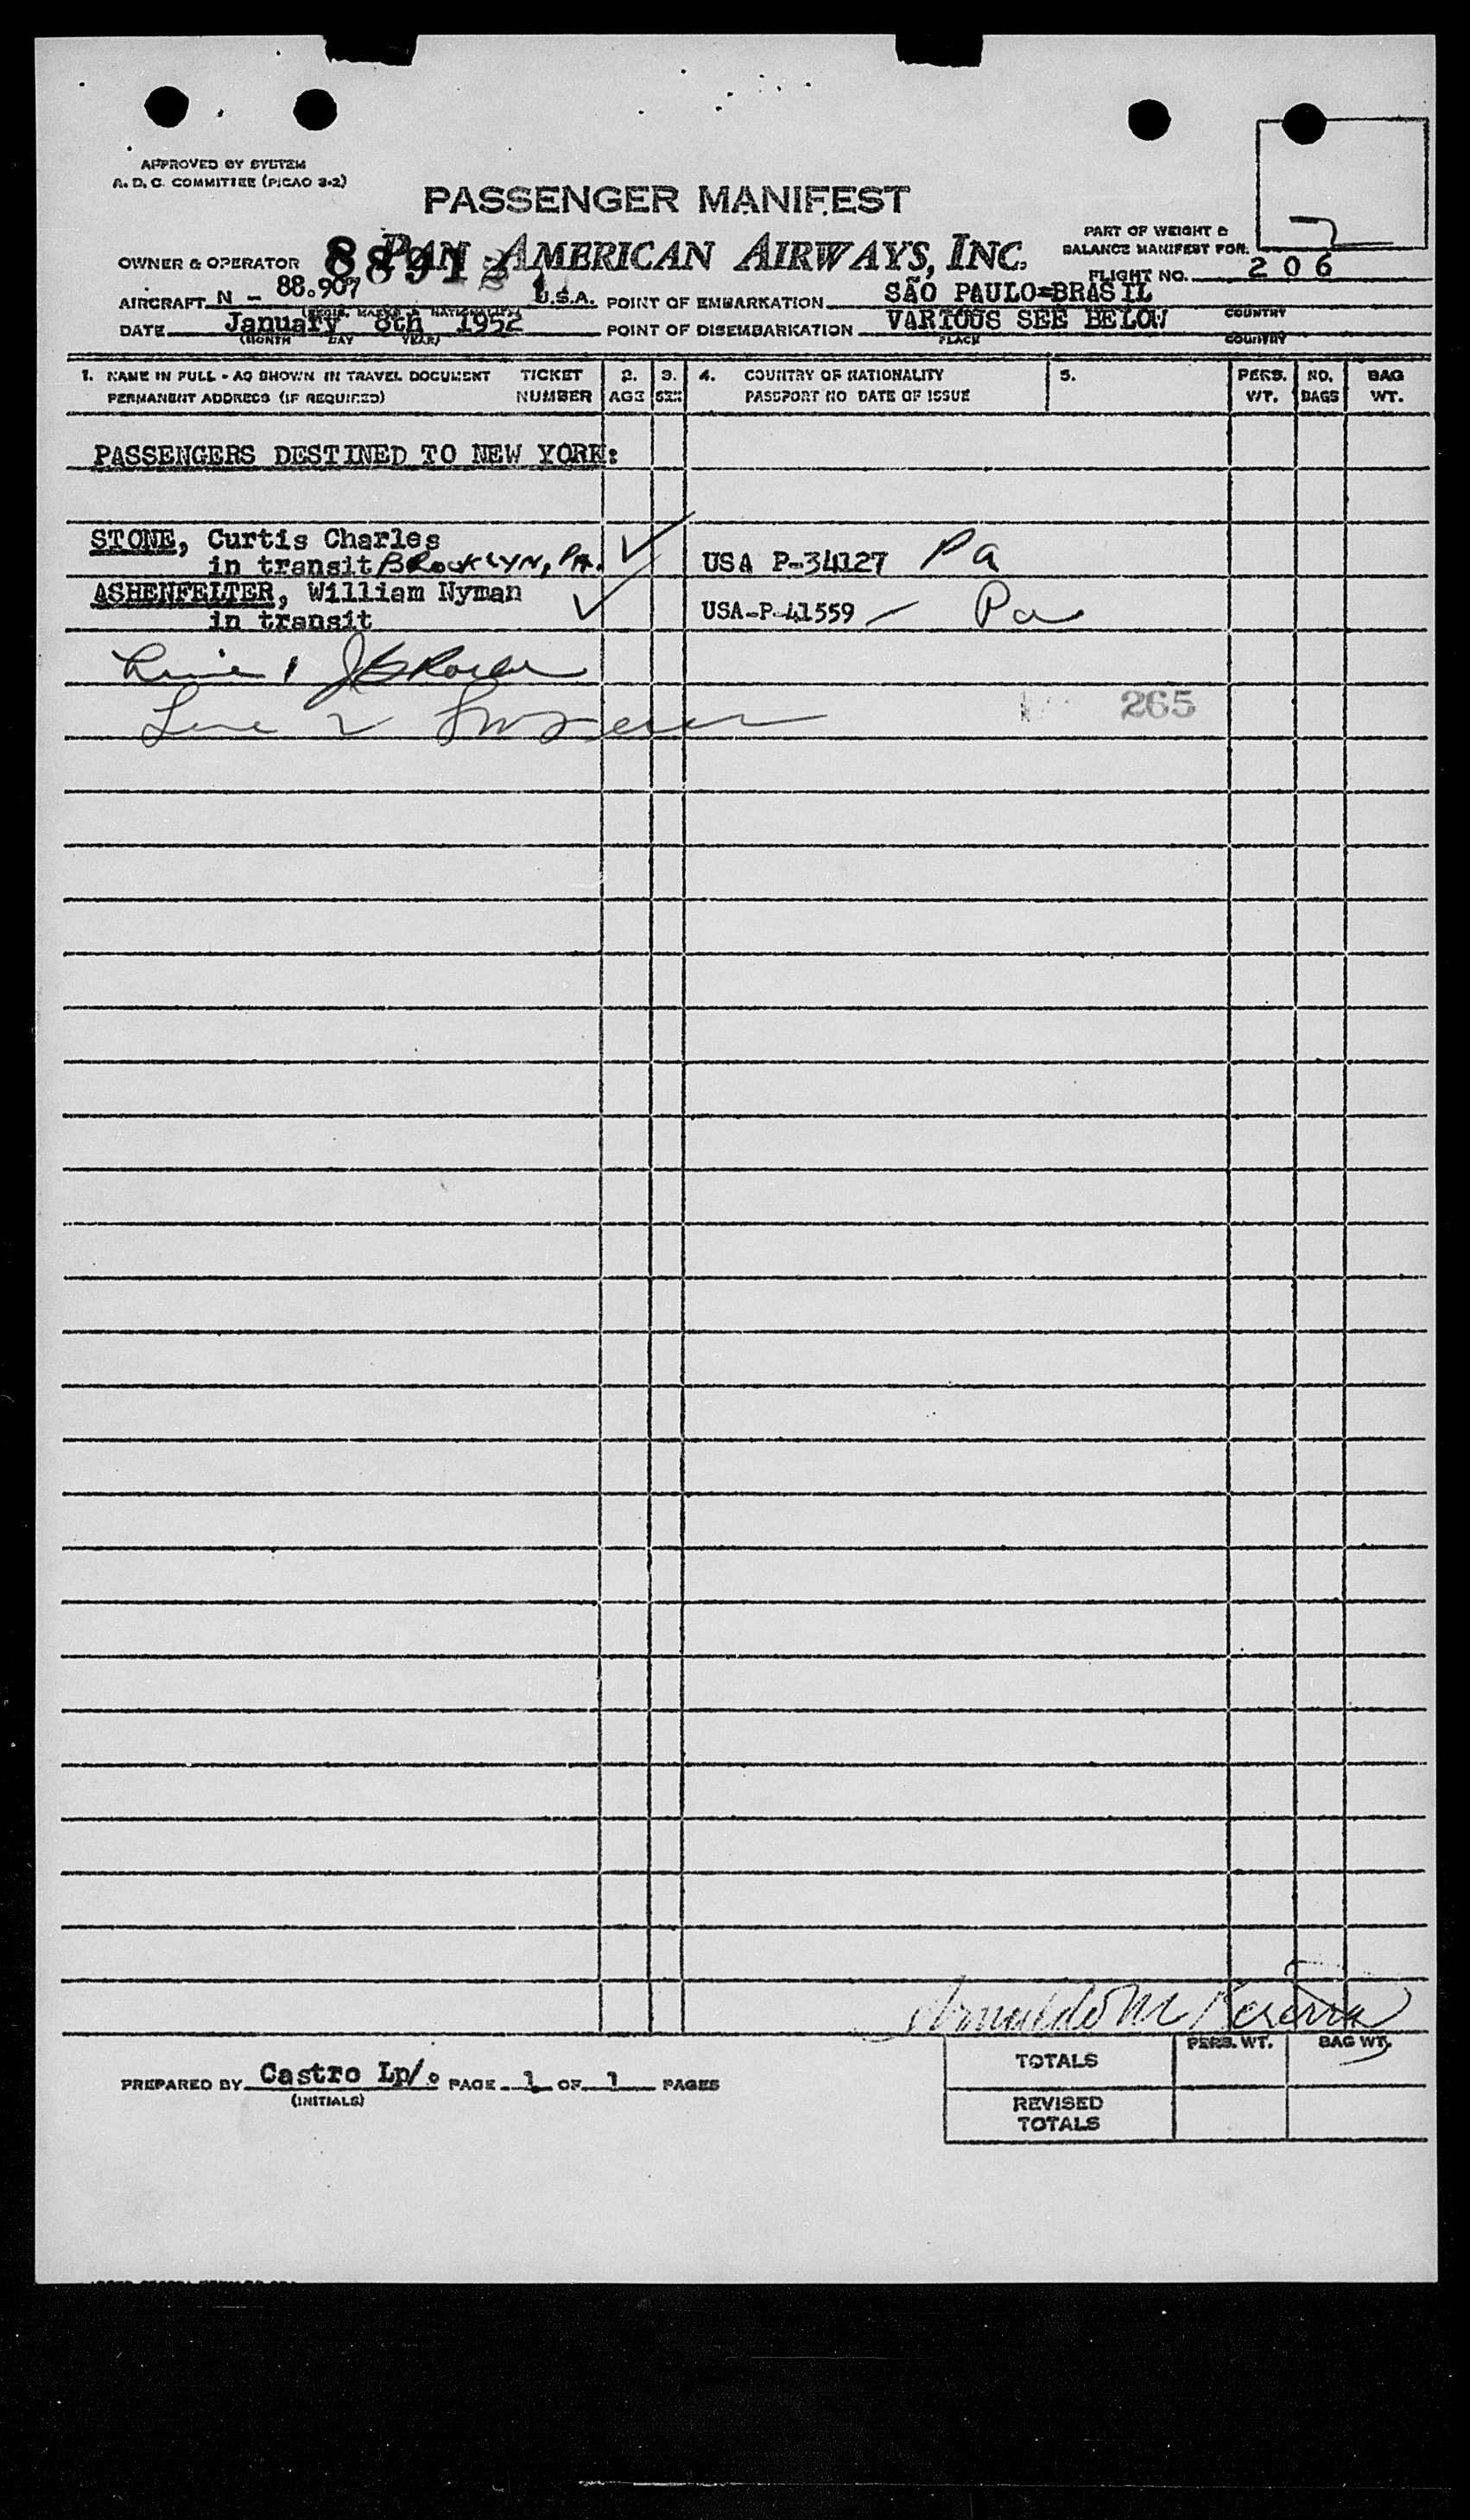 APPROVED BY SYSTEM
A. D. C. COMMITTEE (PICAO 3-2)
PASSENGER MANIFEST
OWNER & OPERATOR PAN AMERICAN AIRWAYS, INC.
8891
PART OF WEIGHT &
BALANCE MANIFEST FOR:
FLIGHT NO. 206
AIRCRAFT N - 88.907 U.S.A. POINT OF EMBARKATION SÃO PAULO=BRASIL
(REGIS. MARKS & NATIONALITY) COUNTRY
DATE January 8th 1952 POINT OF DISEMBARKATION VARIOUS SEE BELOW
(MONTH DAY YEAR) PLACE COUNTRY
1. NAME IN FULL - AS SHOWN IN TRAVEL DOCUMENT TICKET 2. 3. 4. COUNTRY OF NATIONALITY 5. PERS. NO. BAG
PERMANENT ADDRESS (IF REQUIRED) NUMBER AGE SEX PASSPORT NO DATE OF ISSUE WT. BAGS WT.
PASSENGERS DESTINED TO NEW YORK:
STONE, Curtis Charles
in transit BROOKLYN, PA. ✓ USA P-34127 Pa
ASHENFELTER, William Nyman
in transit ✓ USA-P-41559 — Pa
Line 1
Line 2
265
PREPARED BY Castro Lp/o PAGE 1 OF 1 PAGES
(INITIALS)
PERS. WT. BAG WT.
TOTALS
REVISED
TOTALS